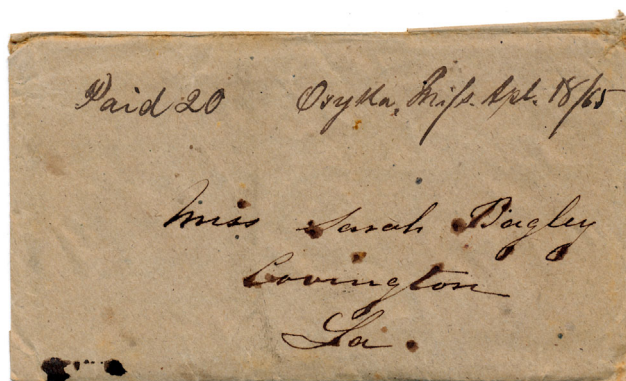 Paid 20 Osyka, Miss. Apl. 18/65
Miss Sarah Bagley
Covington
La.